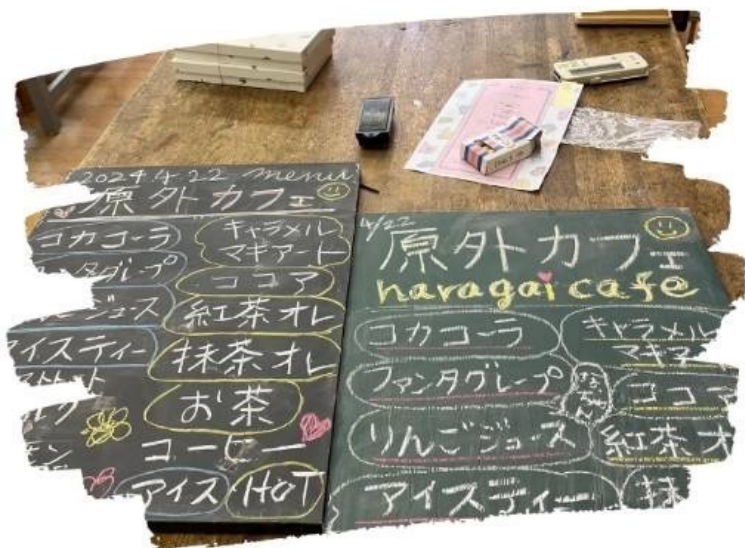 2024 4.22 menu
原外カフェ
コカコーラ
タグレープ
ジュース
アイスティー
キャラメル
マキアート
ココア
紅茶オレ
抹茶オレ
お茶
コーヒー
アイス
HOT
4/22
原外カフ
haragai cafe
コカコーラ
ファンタグレープ
りんごジュース
アイスティー
キャラメル
マキア
ココア
紅茶オ
抹